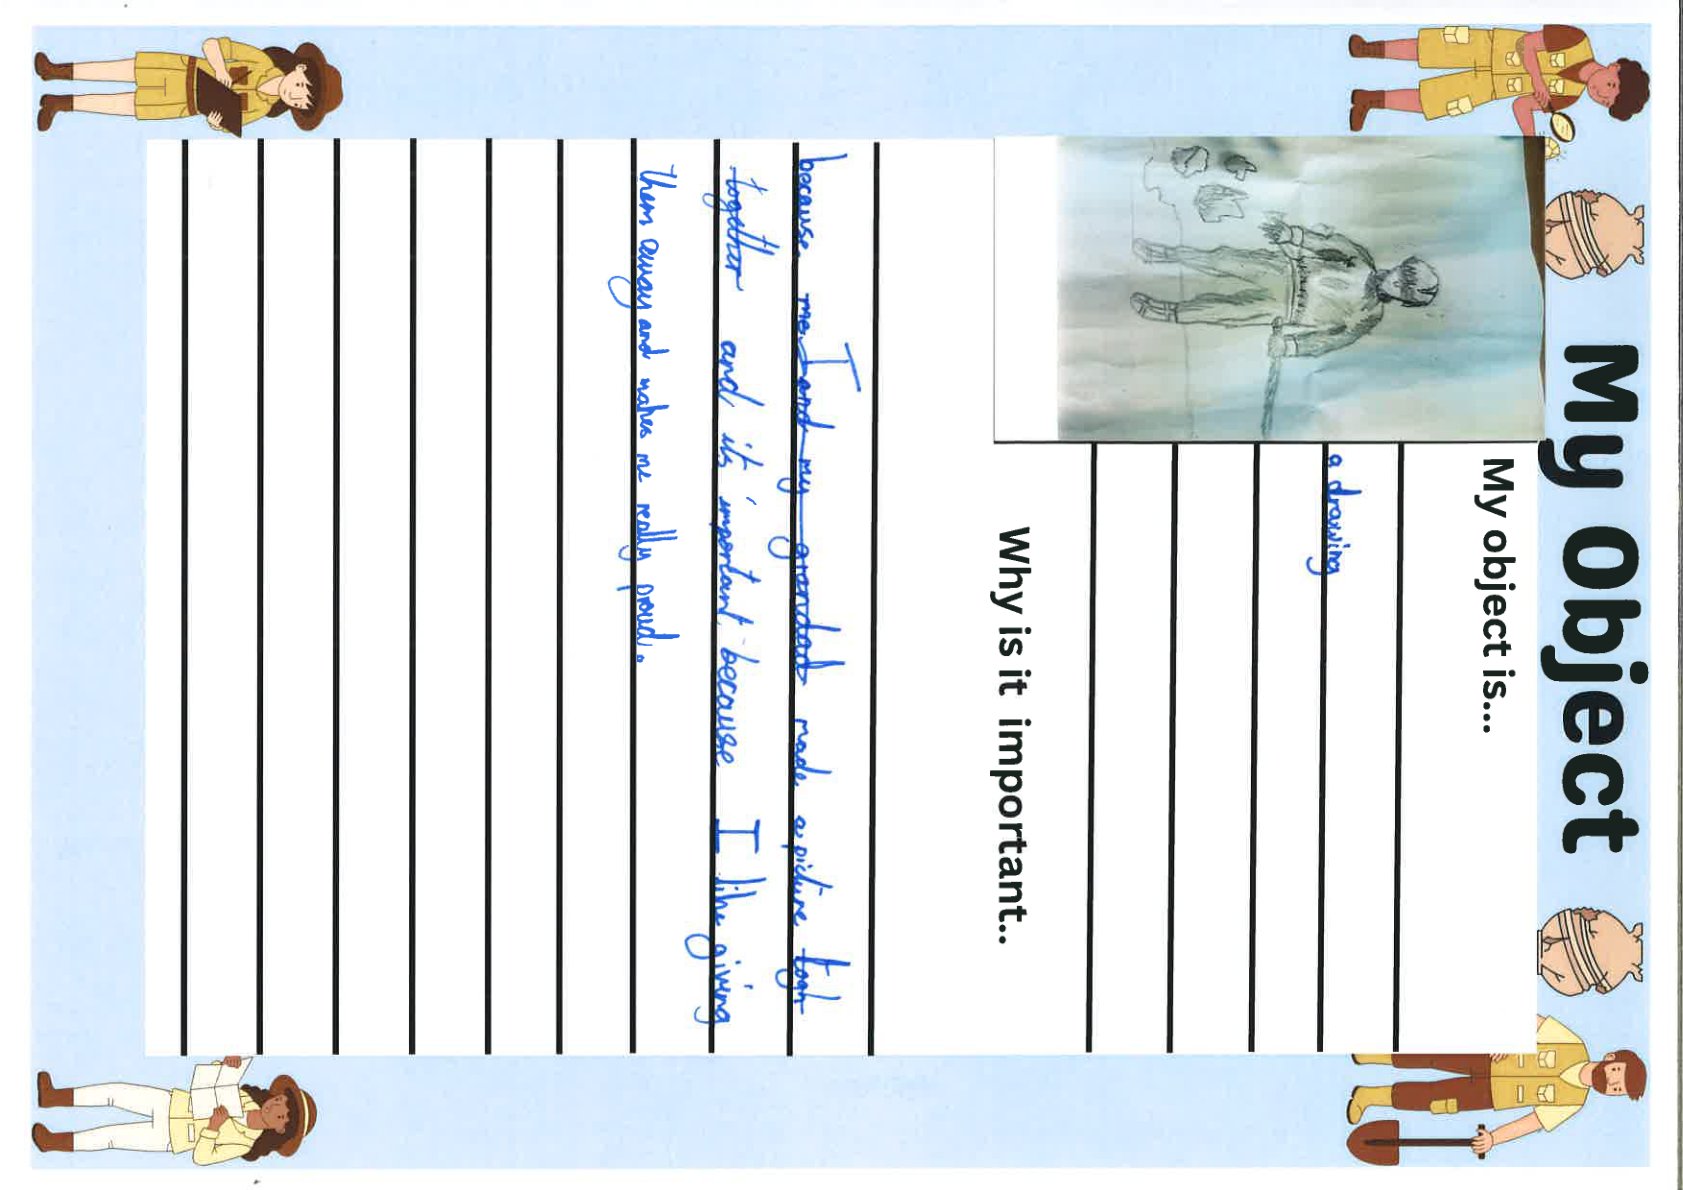 My Object
My object is...
a drawing
Why is it important..
because me I and my grandad made a picture togh
together and its important because I like giving
them away and makes me really proud.